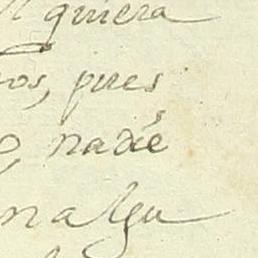 quiera
os, pues
o, nadie
nalgu